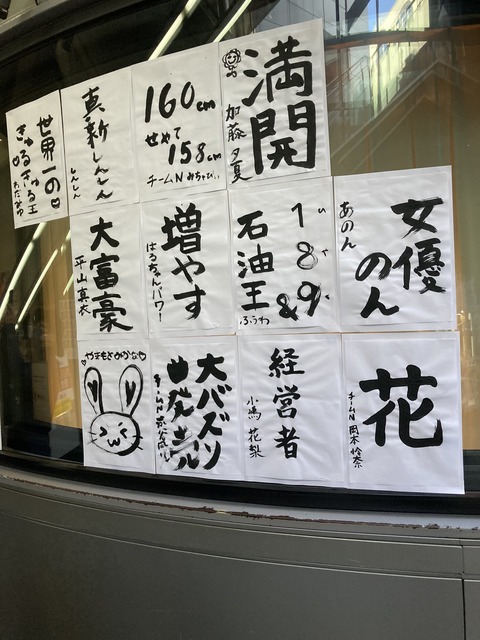 満開
加藤夕夏
160cm
せめて
158cm
チームN みちゃぴぃ
真新しんしん
しんしん
世界一の♡
きゅるきゅる王
女優
のん
あのん
1 8 & 9
石油王
ふうわ
増やす
はるちゃんパワー
大富豪
平山真衣
花
チームN 岡本怜奈
経営者
小嶋花梨
大バズリ
チームN
やまもとみかな♡